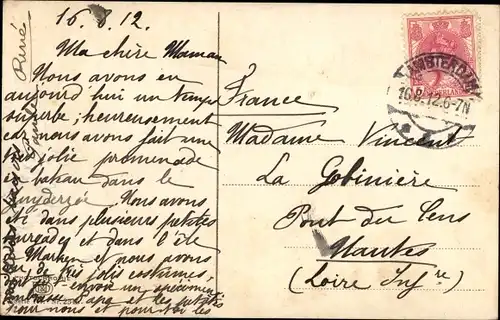 16.8.12.
Ma chère Maman
Nous avons eu
aujourd'hui un temps
superbe; heureusement
car nous avons fait une
très jolie promenade
en bateau dans le
Zuyderzée. Nous avons
été dans plusieurs petites
bourgades et dans l'île
de Marken et nous avons
vu de très jolis costumes.
envoie un spécimen
Embrasse Papa et les petits
pour nous et pour toi les
René
France
Madame Vincent
La Gobinière
Pont du Cens
Nantes
(Loire Infre)
AMSTERDAM
16.8.12.6-7N